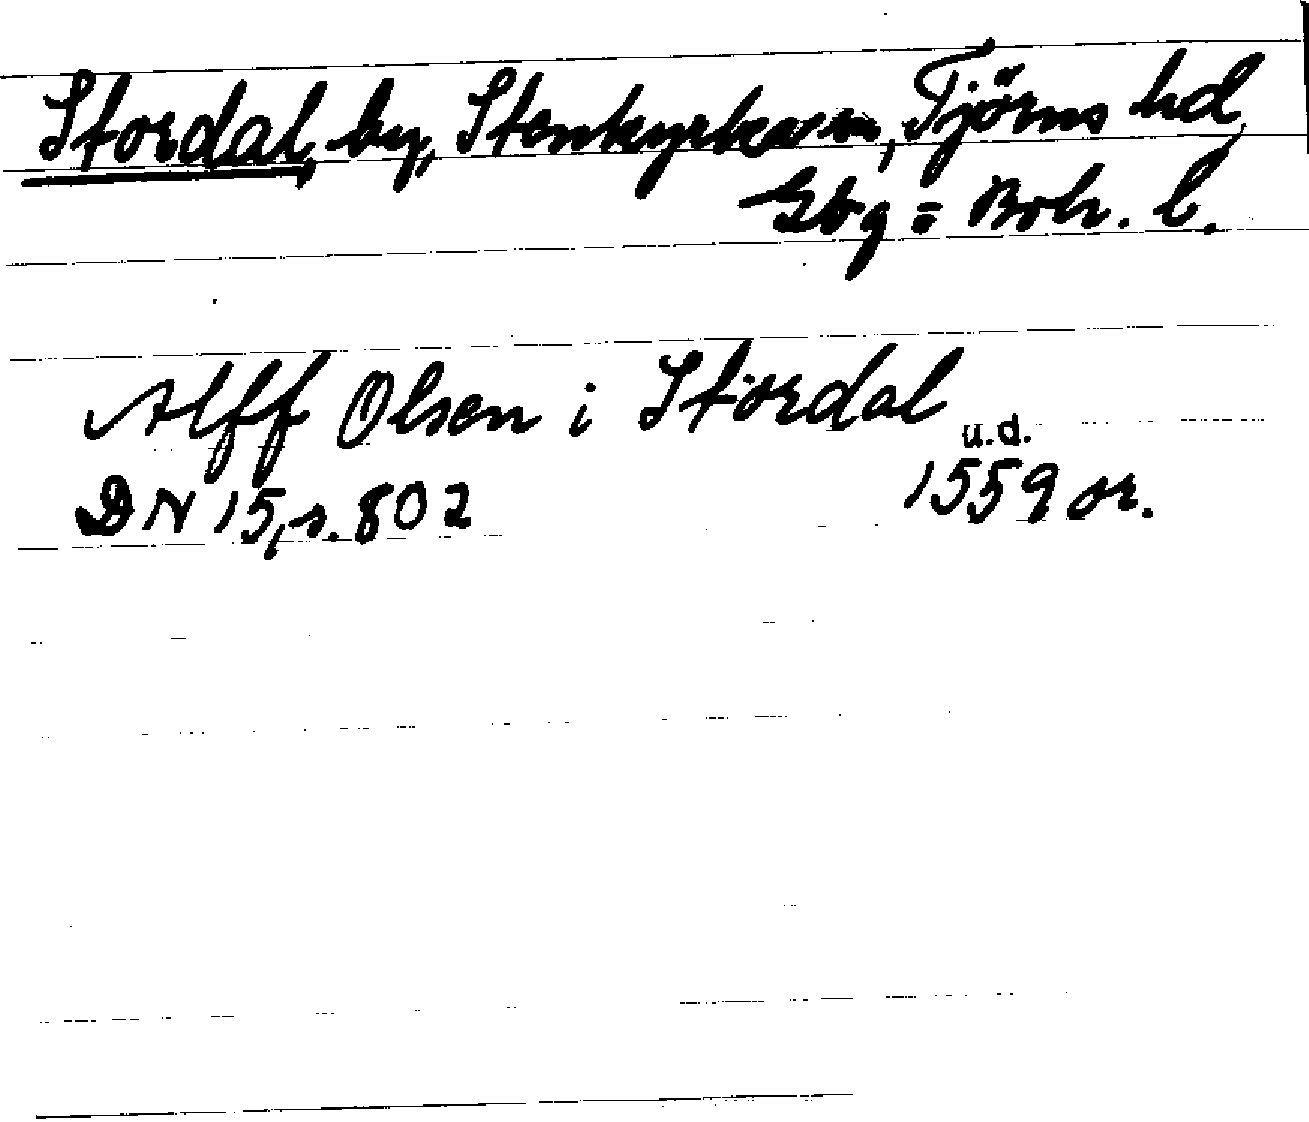 Stordal, by, Stenkyrka sn, Tjörns hd,
Gbg = Boh. l.
Alff Olsen i Stordal u.d.
DN 15, s. 802 1559 or.